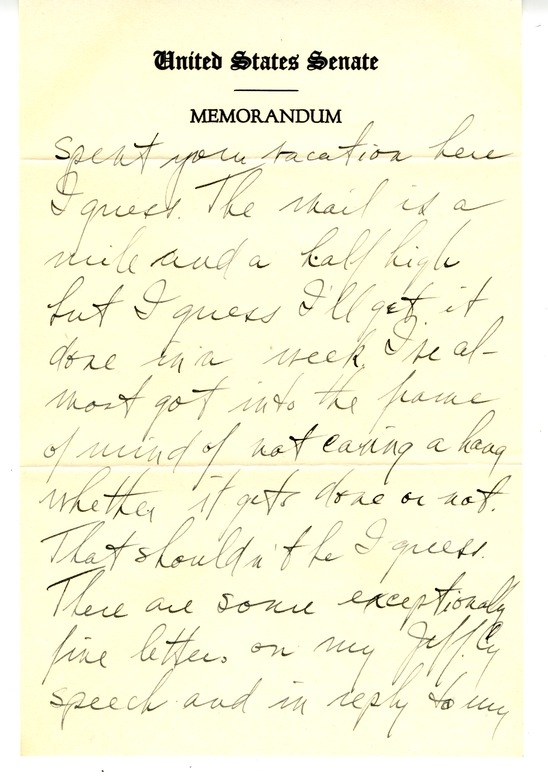 United States Senate
MEMORANDUM
spent your vacation here
I guess. The mail is a
mile and a half high
but I guess I'll get it
done in a week. I've al-
most got into the frame
of mind of not caring a hang
whether it gets done or not.
That shouldn't be I guess.
There are some exceptionally
fine letters on my Jeff. Cy
speech and in reply to my